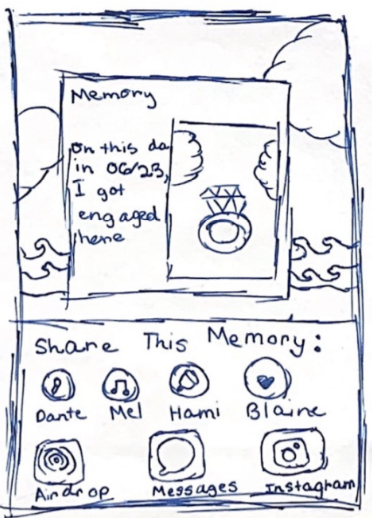 Memory
on this da
in 06/23,
I got
engaged
here
Share This Memory:
Dante Mel Hami Blaine
Airdrop Messages Instagram